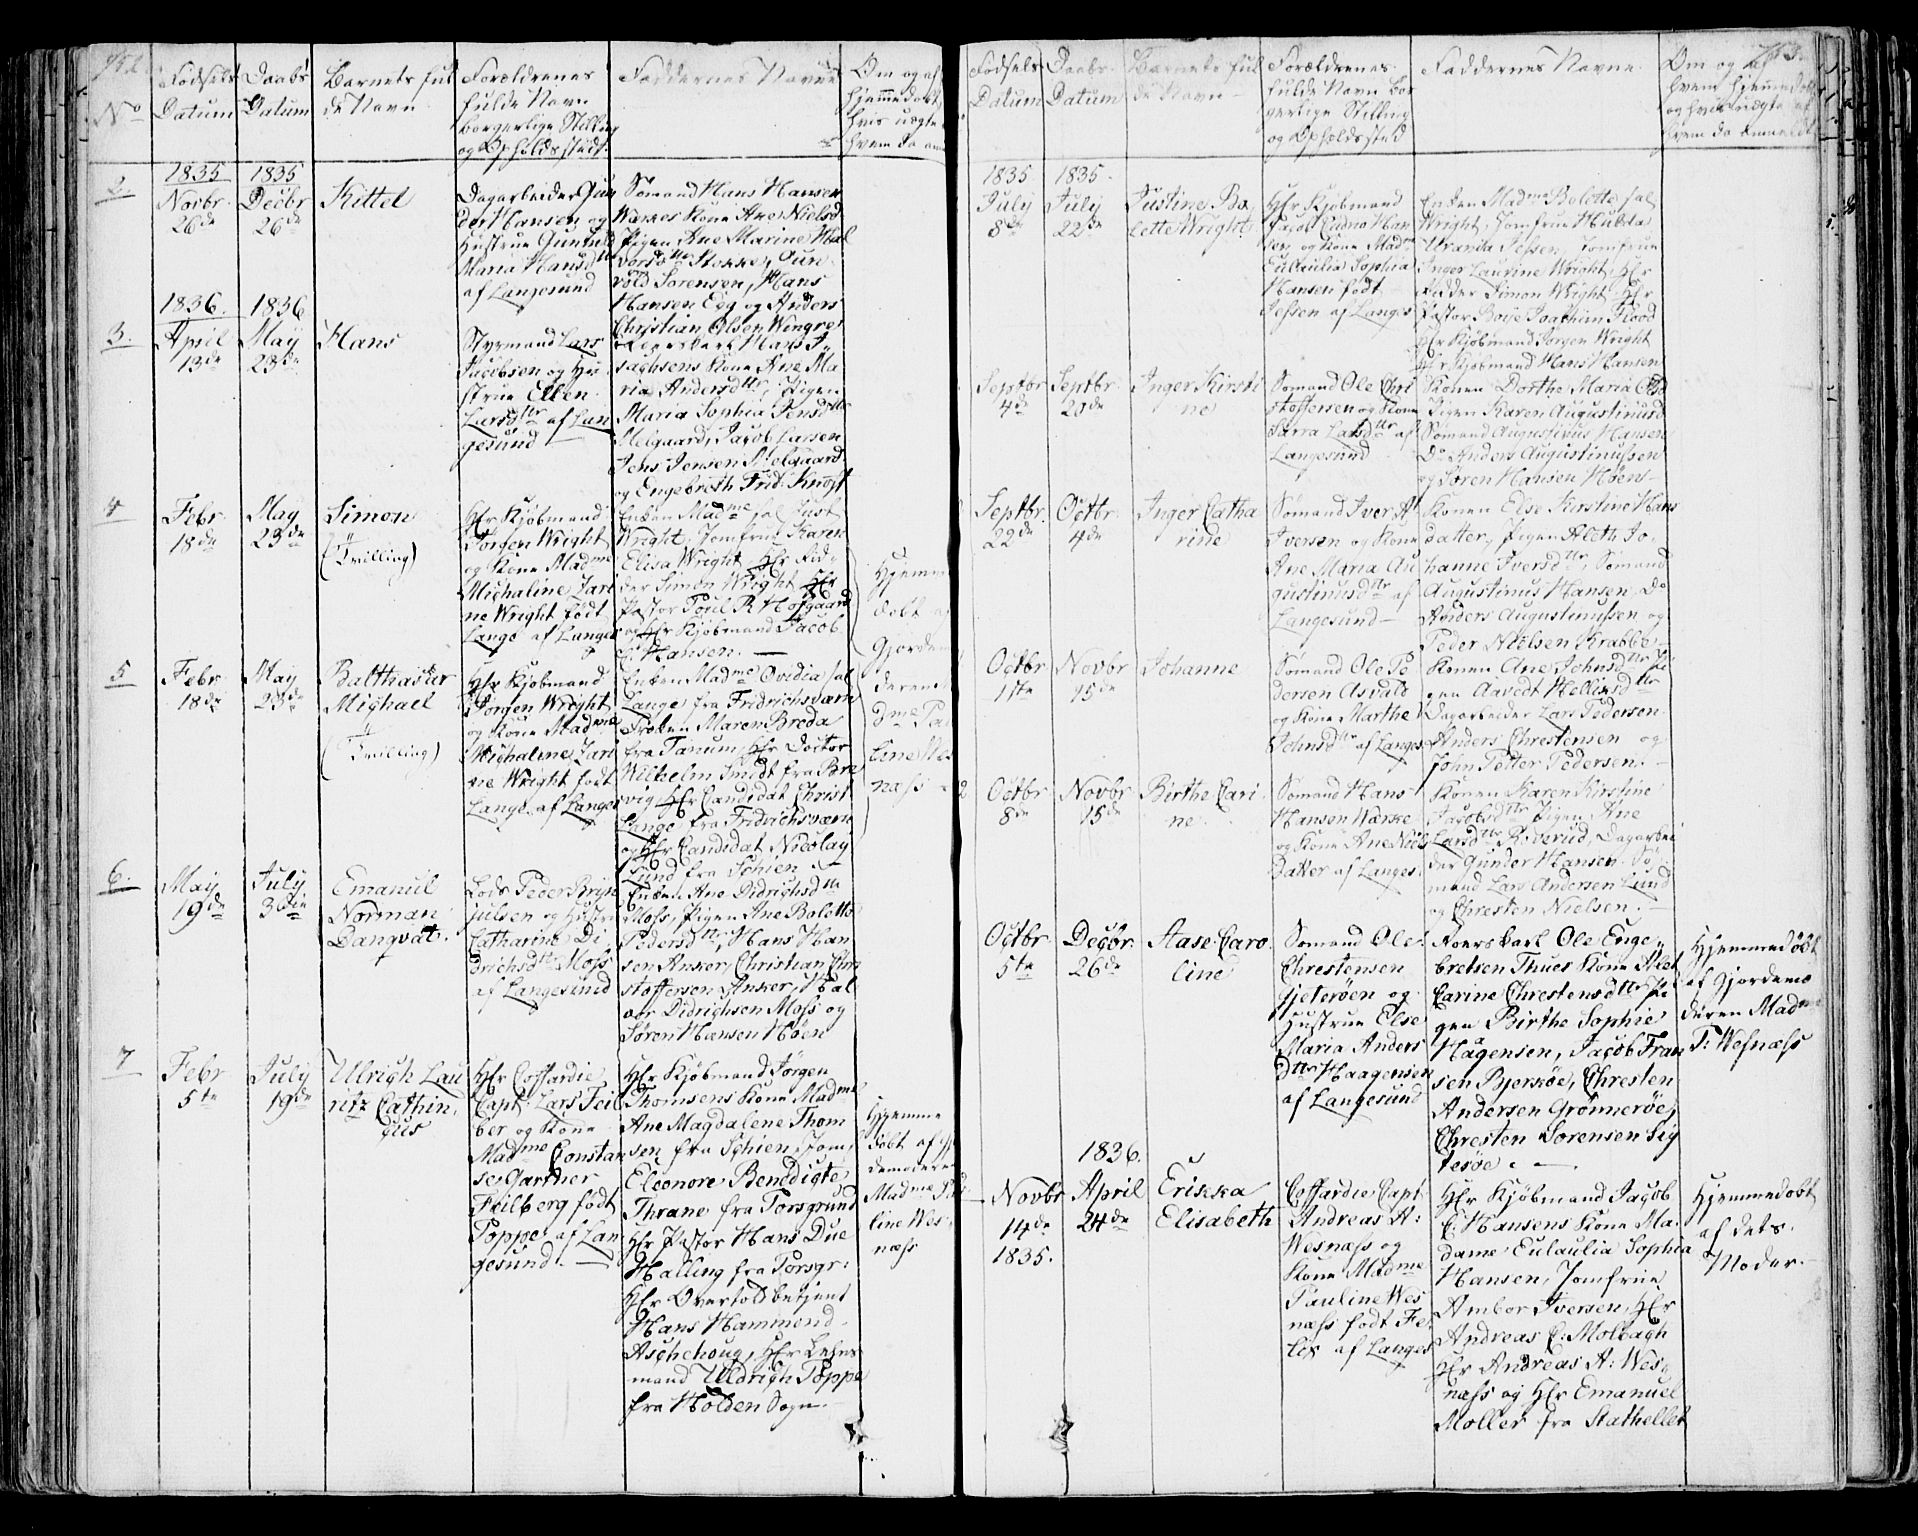 752
No
Fødsels
Datum
Daabs
Datum
Barnets ful
de Navn
Forældrenes
fulde Navn
borgerlige Stilling
og Opholdsstæd.
Faddernes Navne
Om og af
hjemmedøbt,
hvis uægte
hvem da
2.
1835
Novbr.
26de
1835
Decbr
26de
Kittel
Dagarbeider Gun
der Hansen og
Hustrue Gunhild
Maria Hansdttr
af Langesund
Sømand Hans Hansen
Warres Kone Ane Nielsd
Pigen Ane Marine Hal
vorsdttr Stokke, Gun
vold Sørensen, Hans
Hansen Egg og Anders
Christian Olsen Wingre
3.
1836.
April
13de
1836
May
23de
Hans
Styrmand Lars
Jacobsen og Hu
strue Ellen
Larsdttr af Lan
gesund
Hans I
sachsens Kone Ane Ma
ria Andersdttr, Pigen
Maria Sophia Jensdttr
Melgaard, Jacob Larsen
Jens Jensen Melgaard
og Engebreth Frid. Knost
4
Febr
18de
May
23de
Simon
(Tvilling)
Hr Kjøbmand
Jørgen Wright
og Kone Madme
Michaline Zari
ne Wright født
Lange af Langes
Enken Madme sal Just
Wright, Jomfrue Karen
Elisa Wright Hr Rid
der Simon Wright Hr
Pastor Poul R Hofgaard
og Hr Kjøbmand Jacob
E Hansen. —
Hjemme
døbt af
Gjordem
deren
dme Pau
line Wes
næss
5
Febr
18de
May
23de
Balthasar
Michael
(Tvilling)
Hr Kjøbmand
Jørgen Wright
og Kone Madme
Michaline Zari
ne Wright født
Lange af Langes
Enken Madme Ovidia sal
Lange fra Fridrichsværn
Frøken Maren Breda
fra Tanum, Hr Doctor
Wilhelm Smidt fra Bre
vig, Hr Candidat Christ
Lange fra Fridrichsværn
og Hr Candidat Nicolay
Lund fra Schien
6.
May
19de
July
3die
Emanuel
Norman
Danqvat.
Lods Peder Bryn
julsen og Hustru
Catharine Di
drichsdttr Moss
af Langesund
Enken Ane Didrichsdttr
Moss, Pigen Ane Bolette
Pedersdttr, Hans Han
sen Anker, Christian Chri
stoffersen Anker, Hal
vor Didrichsen Moss og
Søren Hansen Høen
7
Febr
5te
July
19de
Ulrich Lau
ritz Cathin,
gius
Hr Coffardie
Capt. Lars Feil
ber og Kone
Madme Constan
se Garther
Feilberg født
Poppe af Lan
gesund. —
Hr Kjøbmand Jørgen
Thomsens Kone Madme
Ane Magdalene Thom
sen fra Schien, Jomf
Eleonore Benedigte
Thrane fra Porsgrund
Hr Pastor Hans Due
Halling fra Porsgr:
Hr Overtoldbetjent
Hans Hammond
Aschehoug, Hr Lehns
mand Uldrich Poppe
fra Holden Sogn.
Hjemme
døbt af
demodere
Madme Pau
line Wes
næss
753.
Fødsels
Datum
Daabs
Datum
Barnets ful
de Navn
Forældrenes
fulde Navn bor
gerlige Stilling
og Opholdsstæd
Faddernes Navne
Om og af
hvem hjemmedøbt
og hvis uægte af
hvem da anmeldt
1835
July
8de
1835.
July
22de
Justine Bo
lette Wright
Hr Kjøbmand
Jacob Eudno Han
sen og Kone Madm
Eulaulia Sophia
Hansen født
Jessen af Langes
Enken Madme Bolette sal
Wright, Jomfrue Hulda
Urania Jessen, Jomfrue
Inger Laurine Wright, Hr
Ridder Simon Wright, Hr
Pastor Boije Joachim Flood
Hr Kjøbmand Jørgen Wright
Hr Kjøbmand Hans Hansen
Septbr
4de
Septbr
20de
Inger Kirsti
ne
Sømand Ole Chri
stoffersen og Kone
Sarra Larsdttr af
Langesund
Konen Dorthe Maria Olsd
Pigen Karen Augustinusd
Sømand Augustinus Hansen
Do Anders Augustinussen
og Søren Hansen Høen
Septbr.
22de
Octbr
4de
Inger Catha
rine
Sømand Iver A
Iversen og Kone
Ane Maria Au
gustinusdttr af
Langesund
Konen Else Kirstine Hans
datter, Pigen Aleth Jo.
hanne Iversdttr, Sømand
Augustinus Hansen Do
Anders Augustinussen og
Peder Nielsen Krabbe
Octbr
1ste
Novbr
15de
Johanne
Sømand Ole Pe
dersen Asvald
og Kone Marthe
Johnsdttr af Langes
Konen Ane Johnsdttr Pi
gen Aavedt Helliksdttr
Dagarbeider Lars Pedersen
Anders Chrestensen og
John Petter Pedersen. —
Octbr
8de
Novbr
15de
Birthe Cari
ne
Sømand Hans
Hansen Warre
og Kone Ane Niels
Datter af Langes
Konen Karen Kirstine
Jacobsdttr Pigen Ane
Larsdttr Boderud, Dagarbei
der Gunder Hansen Sø
mand Lars Andersen Lund
og Chresten Nielsen. —
Octbr
5te
Decbr.
26de
Aase Caro
line
Sømand Ole
Chrestensen
Gjeterøen og
Hustrue Else
Maria Anders
Dttr Haagensen
af Langesund
Roerskarl Ole Enge
bretsen Thues Kone Alet
Carine Chrestensdttr Pi
gen Birthe Sophie
Hagensen, Jacob Fran
sen Bjerkøe, Chresten
Andersen Grønnerøe,
Chresten Sørensen Sig
tesøe. —
Hjemmedøbt
af Gjordemo
deren Madme
P: Wesnæss
Novbr
14de
1835.
1836.
April
24de
Erikka
Elisabeth
Coffardie Capt
Andreas A:
Wesnæss og
Kone Madme
Pauline Wes
næss født Fe
lix af Langes
Hr Kjøbmand Jacob
E: Hansens Kone Ma
dame Eulaulia Sophia
Hansen, Jomfrue
Ambor Iversen, Hr
Andreas C: Molbagh
Hr Andreas A: Wes
næss og Hr Emanuel
Møller fra Stathellet
Hjemmedøbt
af dets
Moder.